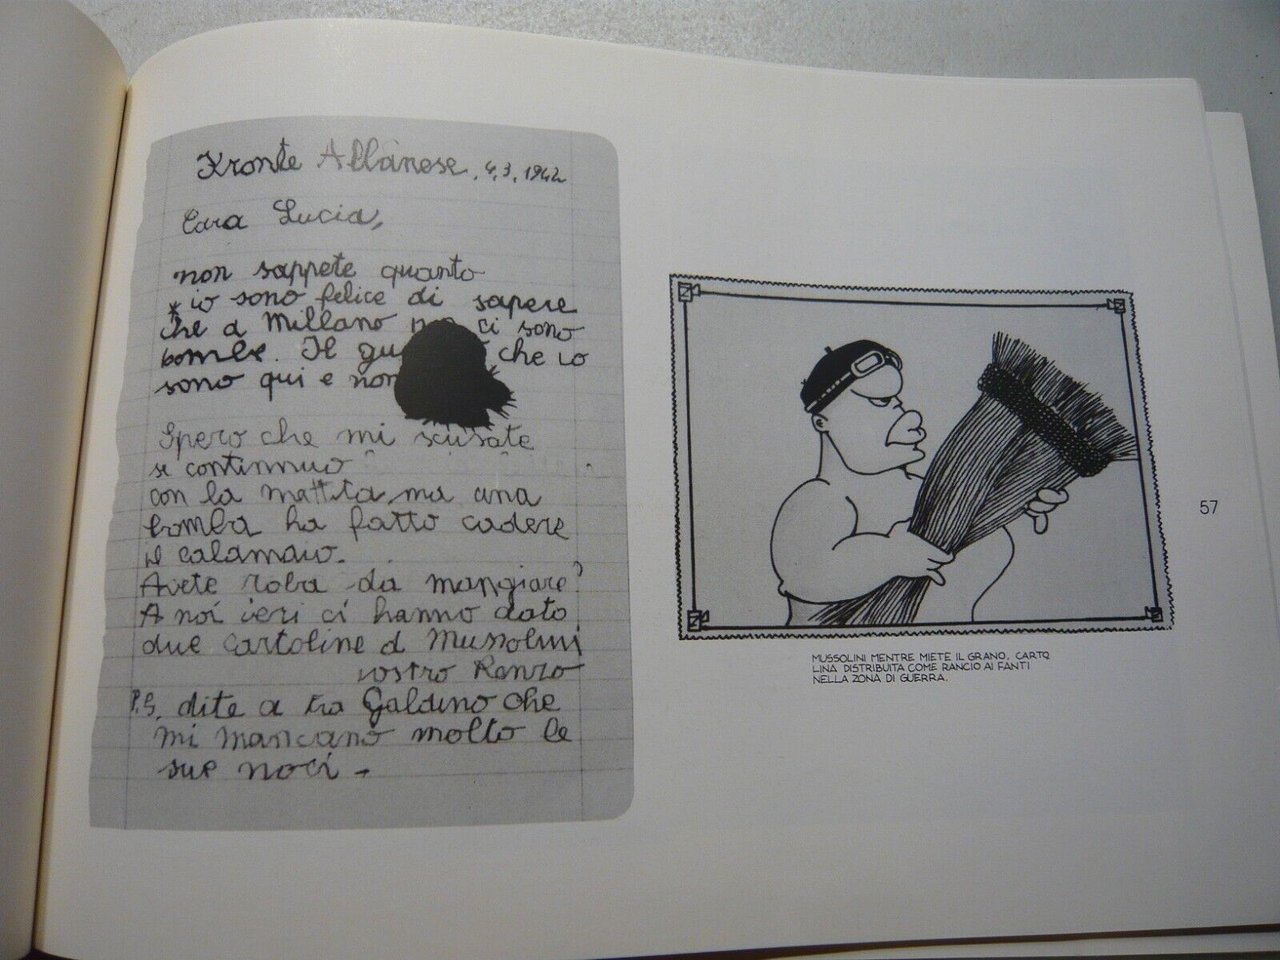 Fronte Albanese, 4.3.1942
Cara Lucia,
non sappete quanto
io sono felice di sapere
che a Millano ci sono
bombe. Il che io
sono qui e non
Spero che mi scusate
se continnuo
con la mattita, ma una
bomba ha fatto cadere
il calamaio.
Avete roba da mangiare?
A noi ieri ci hanno dato
due cartoline d Mussolini
vostro Renzo
P.S. dite a fra Galdino che
mi mancano molto le
sue noci -
MUSSOLINI MENTRE MIETE IL GRANO. CARTO
LINA DISTRIBUITA COME RANCIO AI FANTI
NELLA ZONA DI GUERRA.
57